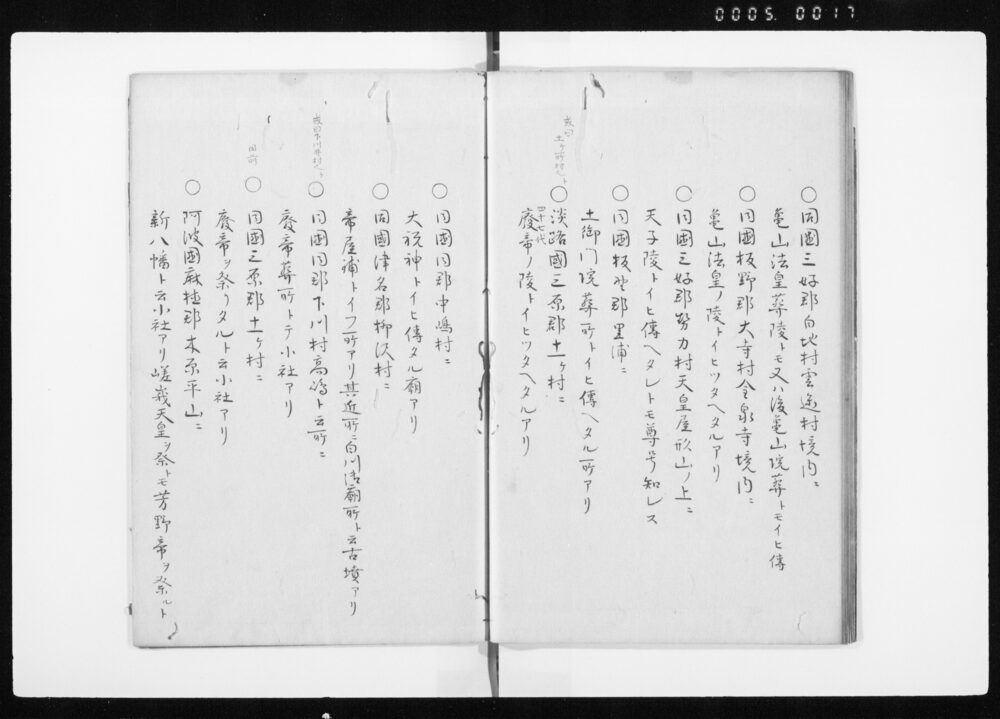 0005. 0017
○同國三好郡白地村雲辺村境内ニ
亀山法皇葬陵トモ又ハ後亀山院葬トモイヒ傳
○同國板野郡大寺村金泉寺境内ニ
亀山法皇ノ陵トイヒツタヘタルアリ
○同國三好郡勢力村天皇屋形山ノ上ニ
天子陵トイヒ傳ヘタレトモ尊号知レス
○同國板野郡里浦ニ
土御门院葬所トイヒ傳ヘタル所アリ
或曰土ケ所村ト
○淡路國三原郡十一ヶ村ニ
四十七代
廢帝ノ陵トイヒツタヘタルアリ
○同國同郡中嶋村ニ
大祝神トイヒ傳タル廟アリ
○同國津名郡柳沢村ニ
帝屋浦トイフ所アリ其近所ニ白川法廟所ト云古墳アリ
或曰下川井村ト
○同國同郡下川村高嶋ト云所ニ
廢帝葬所トテ小社アリ
同前
○同國三原郡十一ヶ村ニ
廢帝ヲ祭リタルト云小社アリ
○阿波國麻植郡木原平山ニ
新八幡ト云小社アリ嵯峨天皇ヲ祭トモ芳野帝ヲ祭ルト